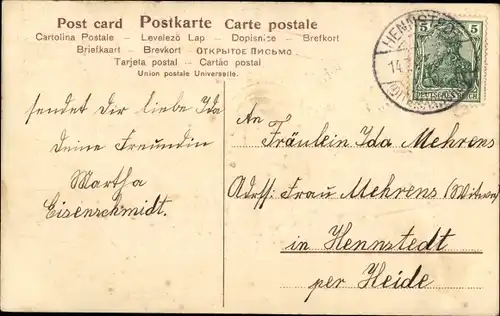 Post card Postkarte Carte postale
Cartolina Postale – Levelező Lap – Dopisnice – Brefkort
Briefkaart – Brevkort – ОТКРЫТОЕ ПИСЬМО –
Tarjeta postal – Cartão postal
Union postale Universelle.
HENNSTEDT
14.
5 5
sendet Dir liebe Ida
Deine Freundin
Martha
Eisenschmidt.
An
Fräulein Ida Mehrens
Adrss: Frau Mehrens (Witwe)
in Hennstedt
per Heide